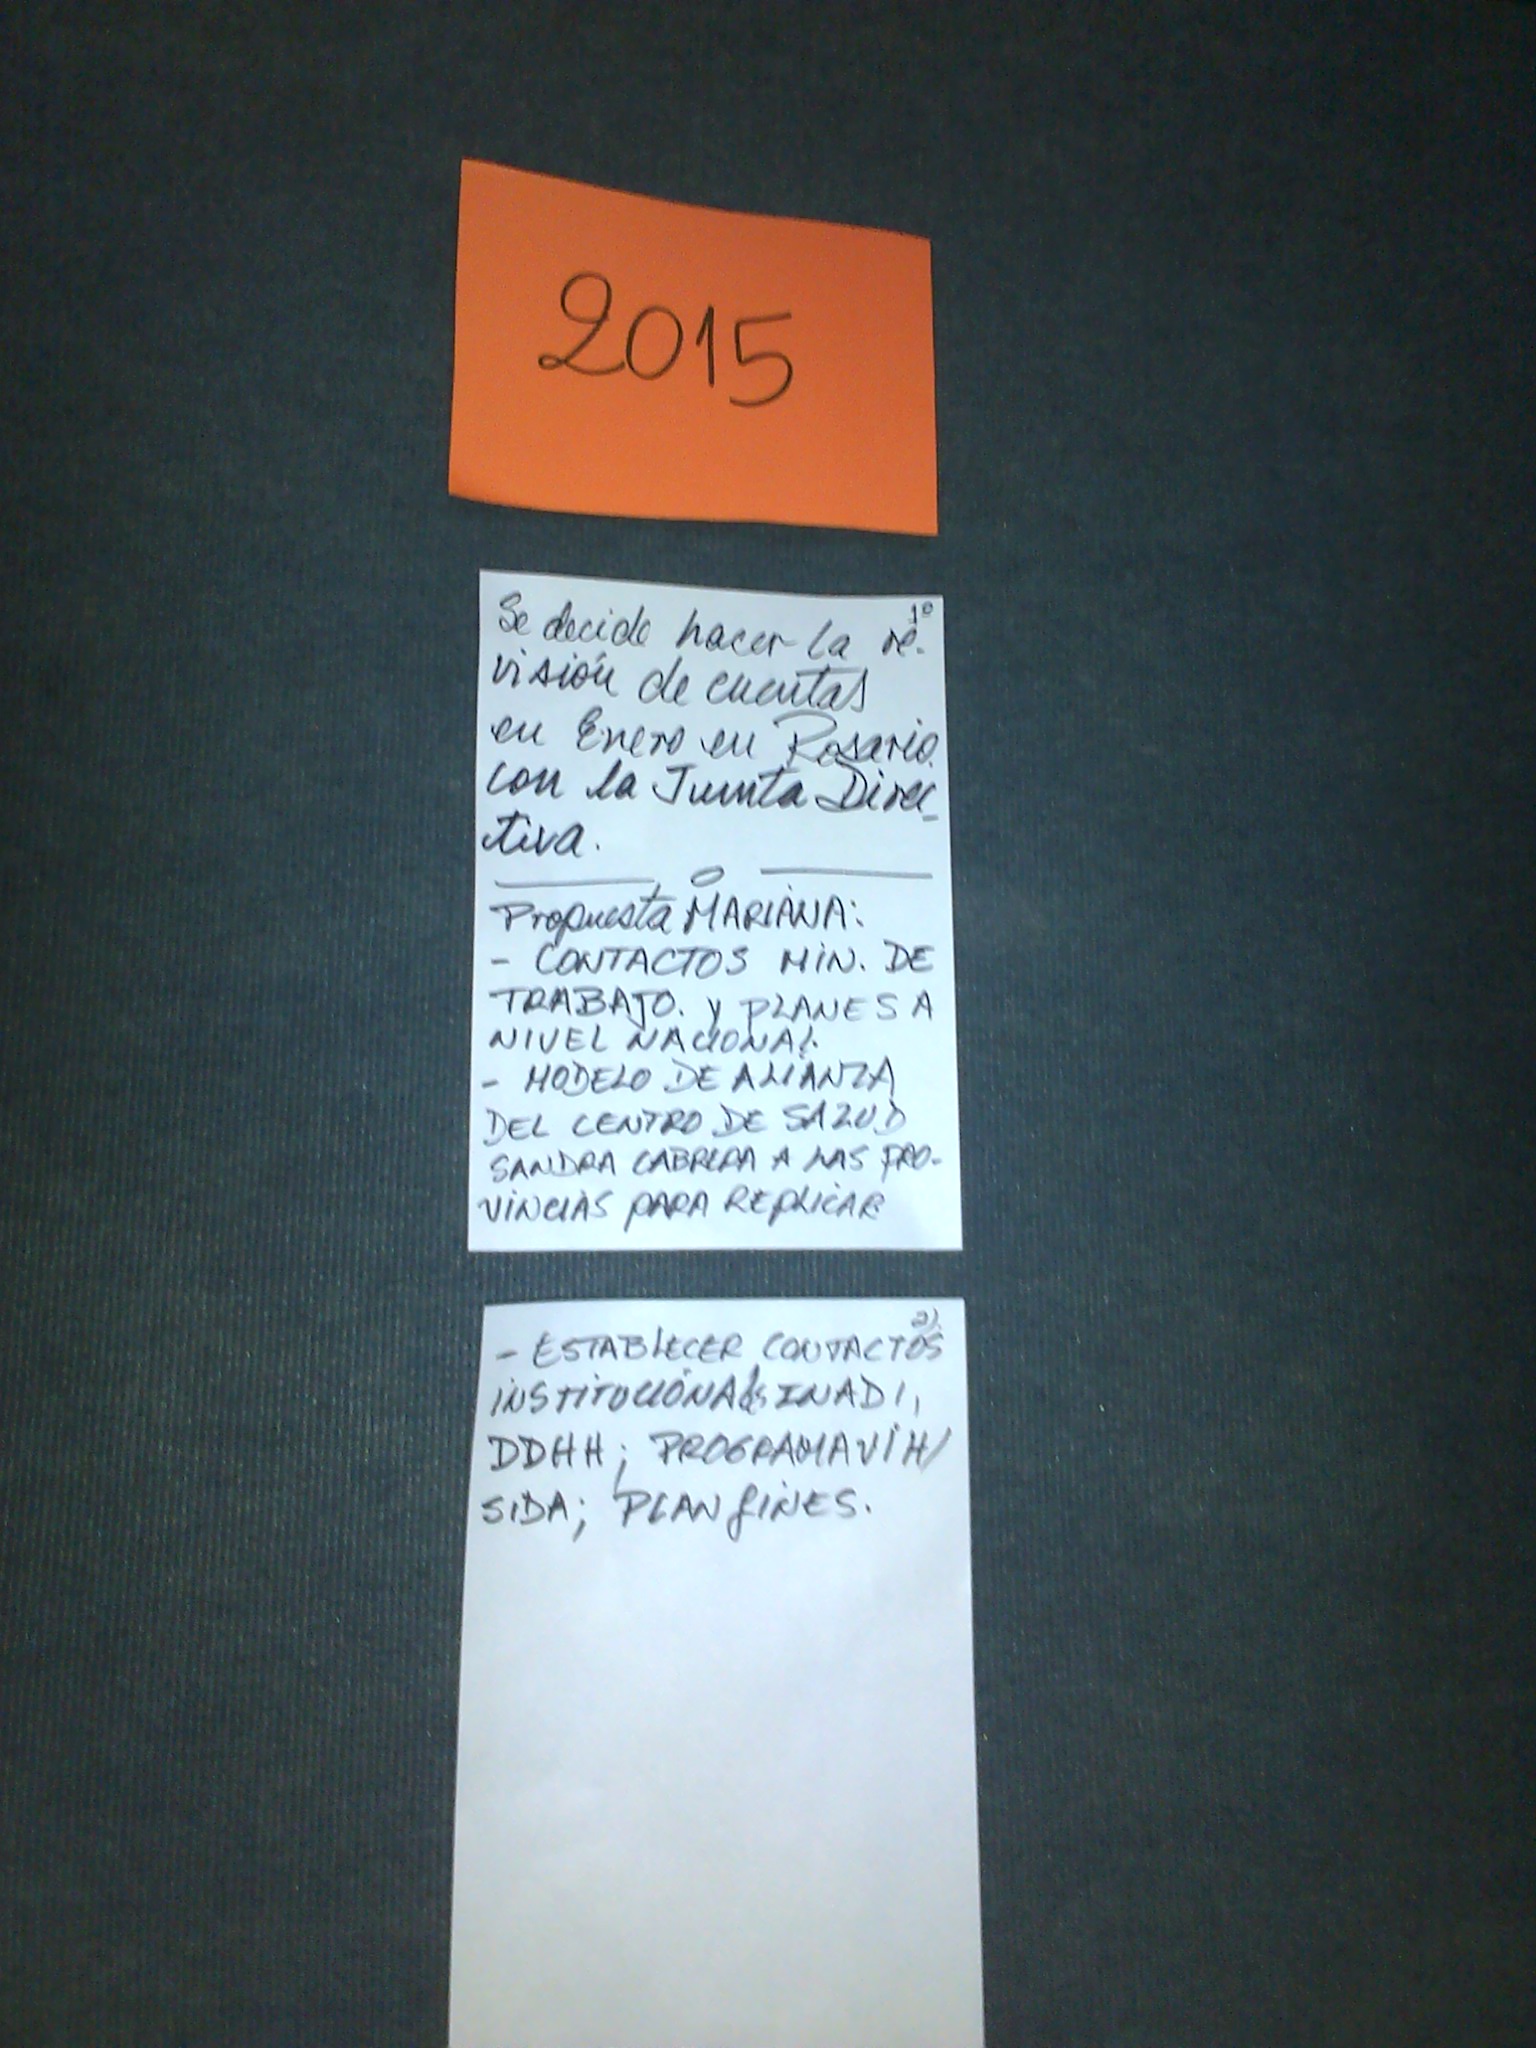 2015
1º
Se decide hacer la re-
visión de cuentas
en Enero en Rosario
con la Junta Direc-
tiva.
Propuesta MARIANA:
- CONTACTOS MIN. DE
TRABAJO. y PLANES A
NIVEL NACIONAL.
- MODELO DE ALIANZA
DEL CENTRO DE SALUD
SANDRA CABRERA A LAS PRO-
VINCIAS PARA REPLICAR
2)
- ESTABLECER CONTACTOS
INSTITUCIONALES INADI,
DDHH; PROGRAMA VIH/
SIDA; PLAN fINES.